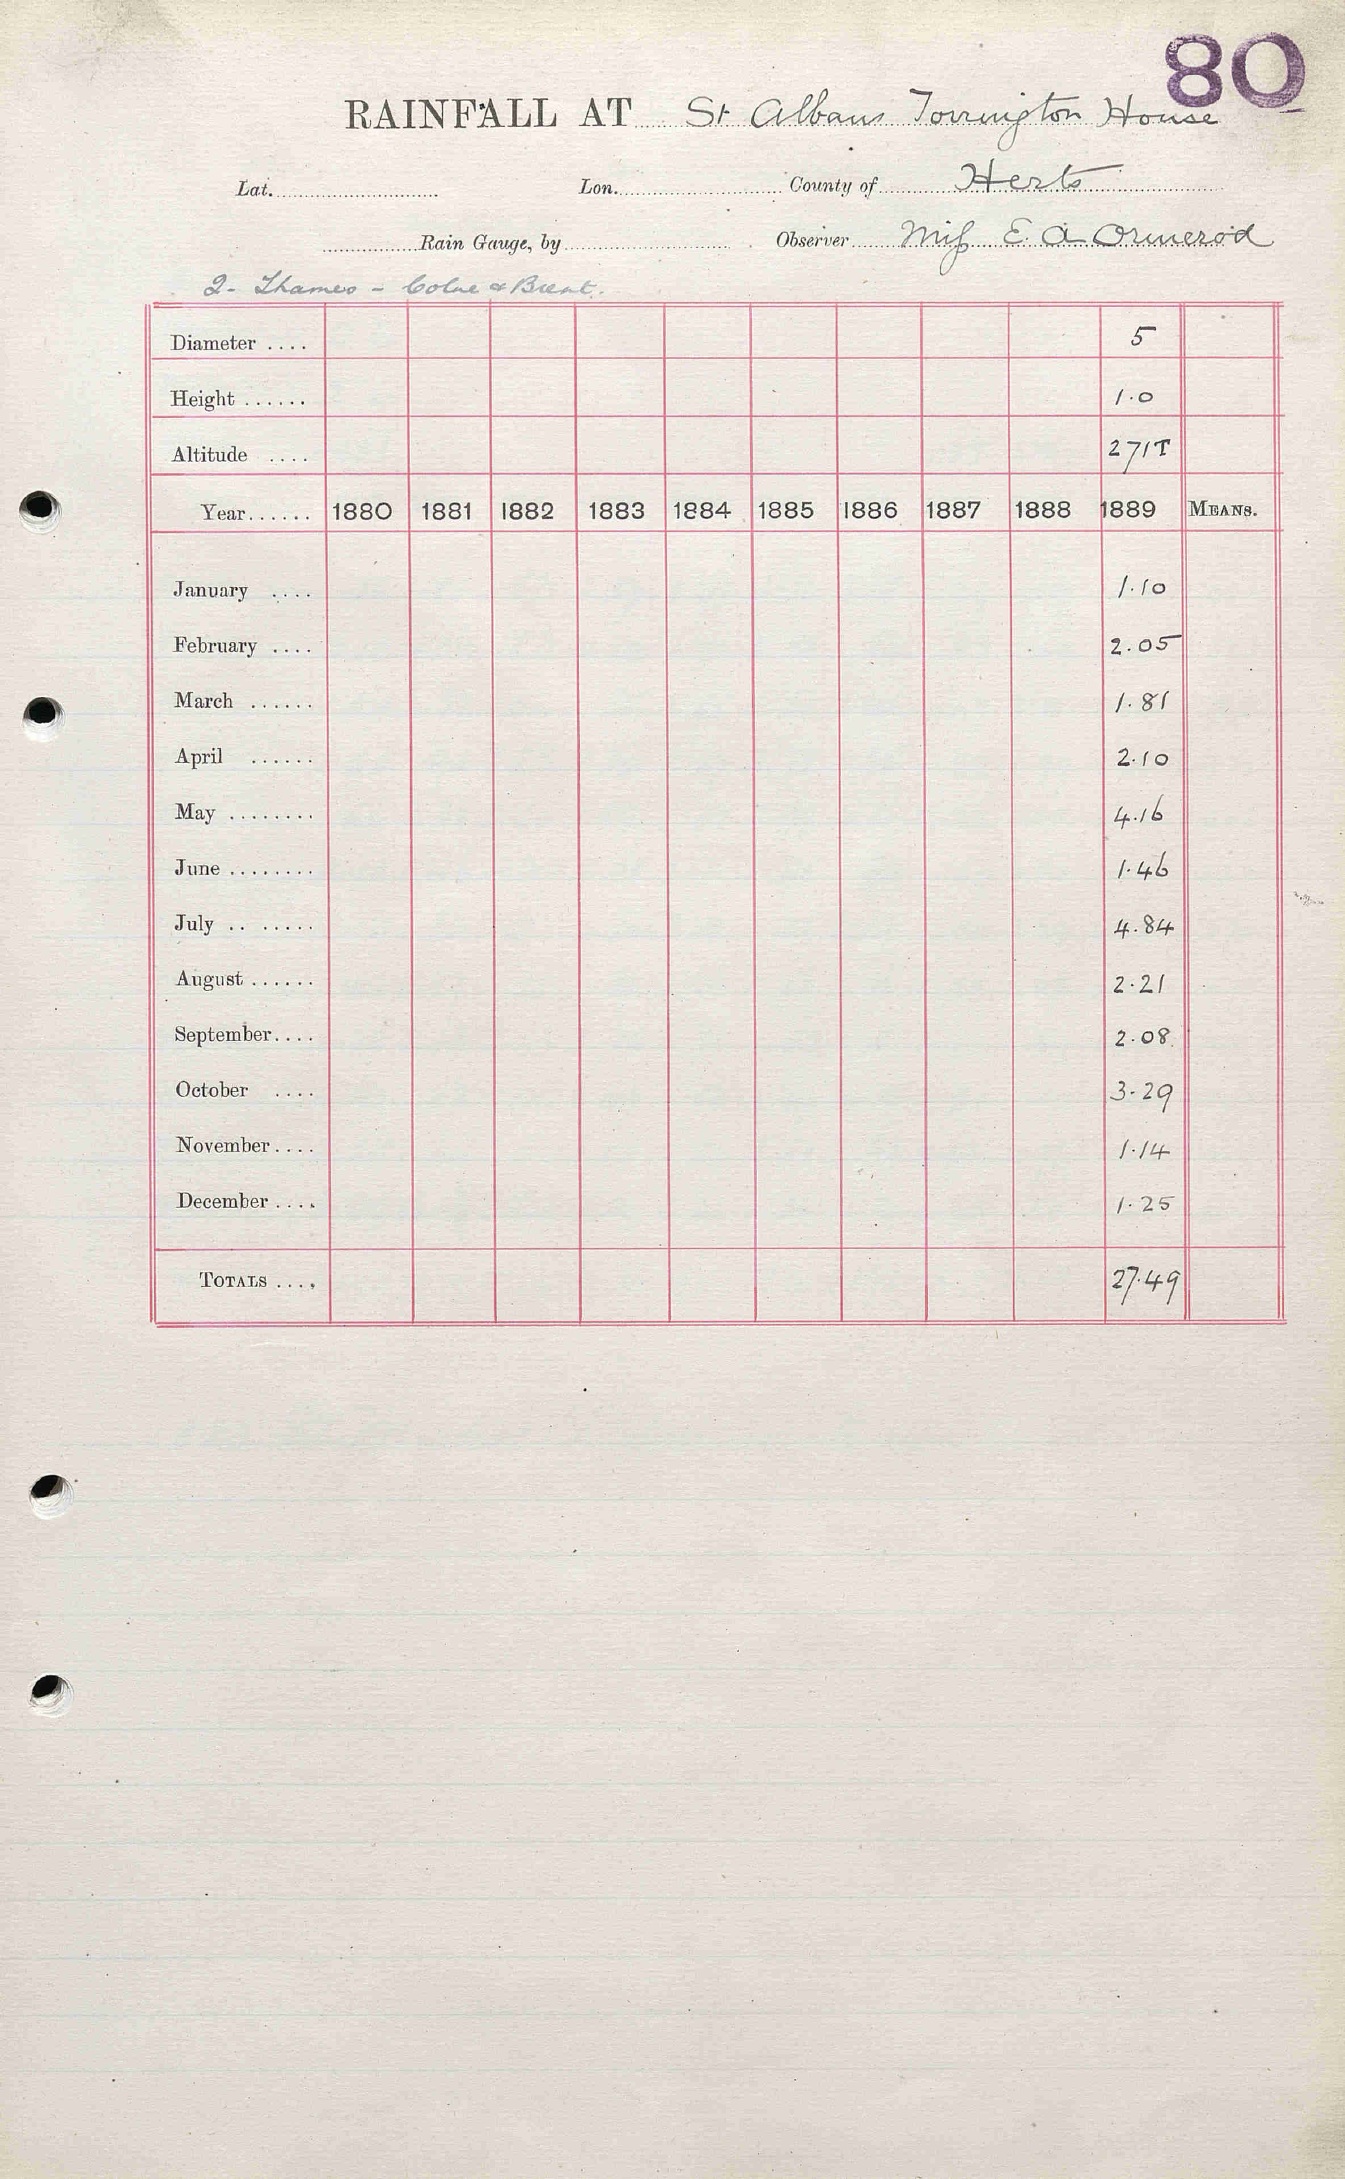 80
RAINFALL AT St Albans Torrington House
Lat. Lon. County of Herts
Rain Gauge, by Observer Miss E. A Ormerod
2- Thames - Colne & Brent.
Diameter .... 5
Height ...... 1.0
Altitude .... 271T
Year...... 1880 1881 1882 1883 1884 1885 1886 1887 1888 1889 MEANS.
January .... 1.10
February .... 2.05
March ...... 1.81
April ...... 2.10
May ........ 4.16
June ........ 1.46
July .. ..... 4.84
August ...... 2.21
September.... 2.08
October .... 3.29
November.... 1.14
December .... 1.25
TOTALS .... 27.49